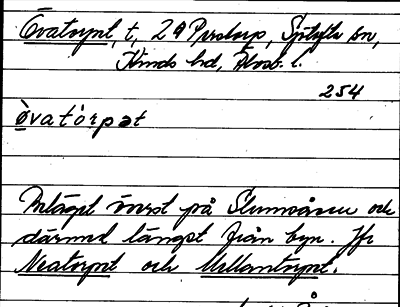 Övatorpet, t, 29 Perstorp, Sptlfts sn,
Kinds hd, Älvsb. l.
254
òvatórpət
Beläget överst på Slumsåsen och
därmed längst från byn. Jfr
Neatorpet och Mellantorpet.